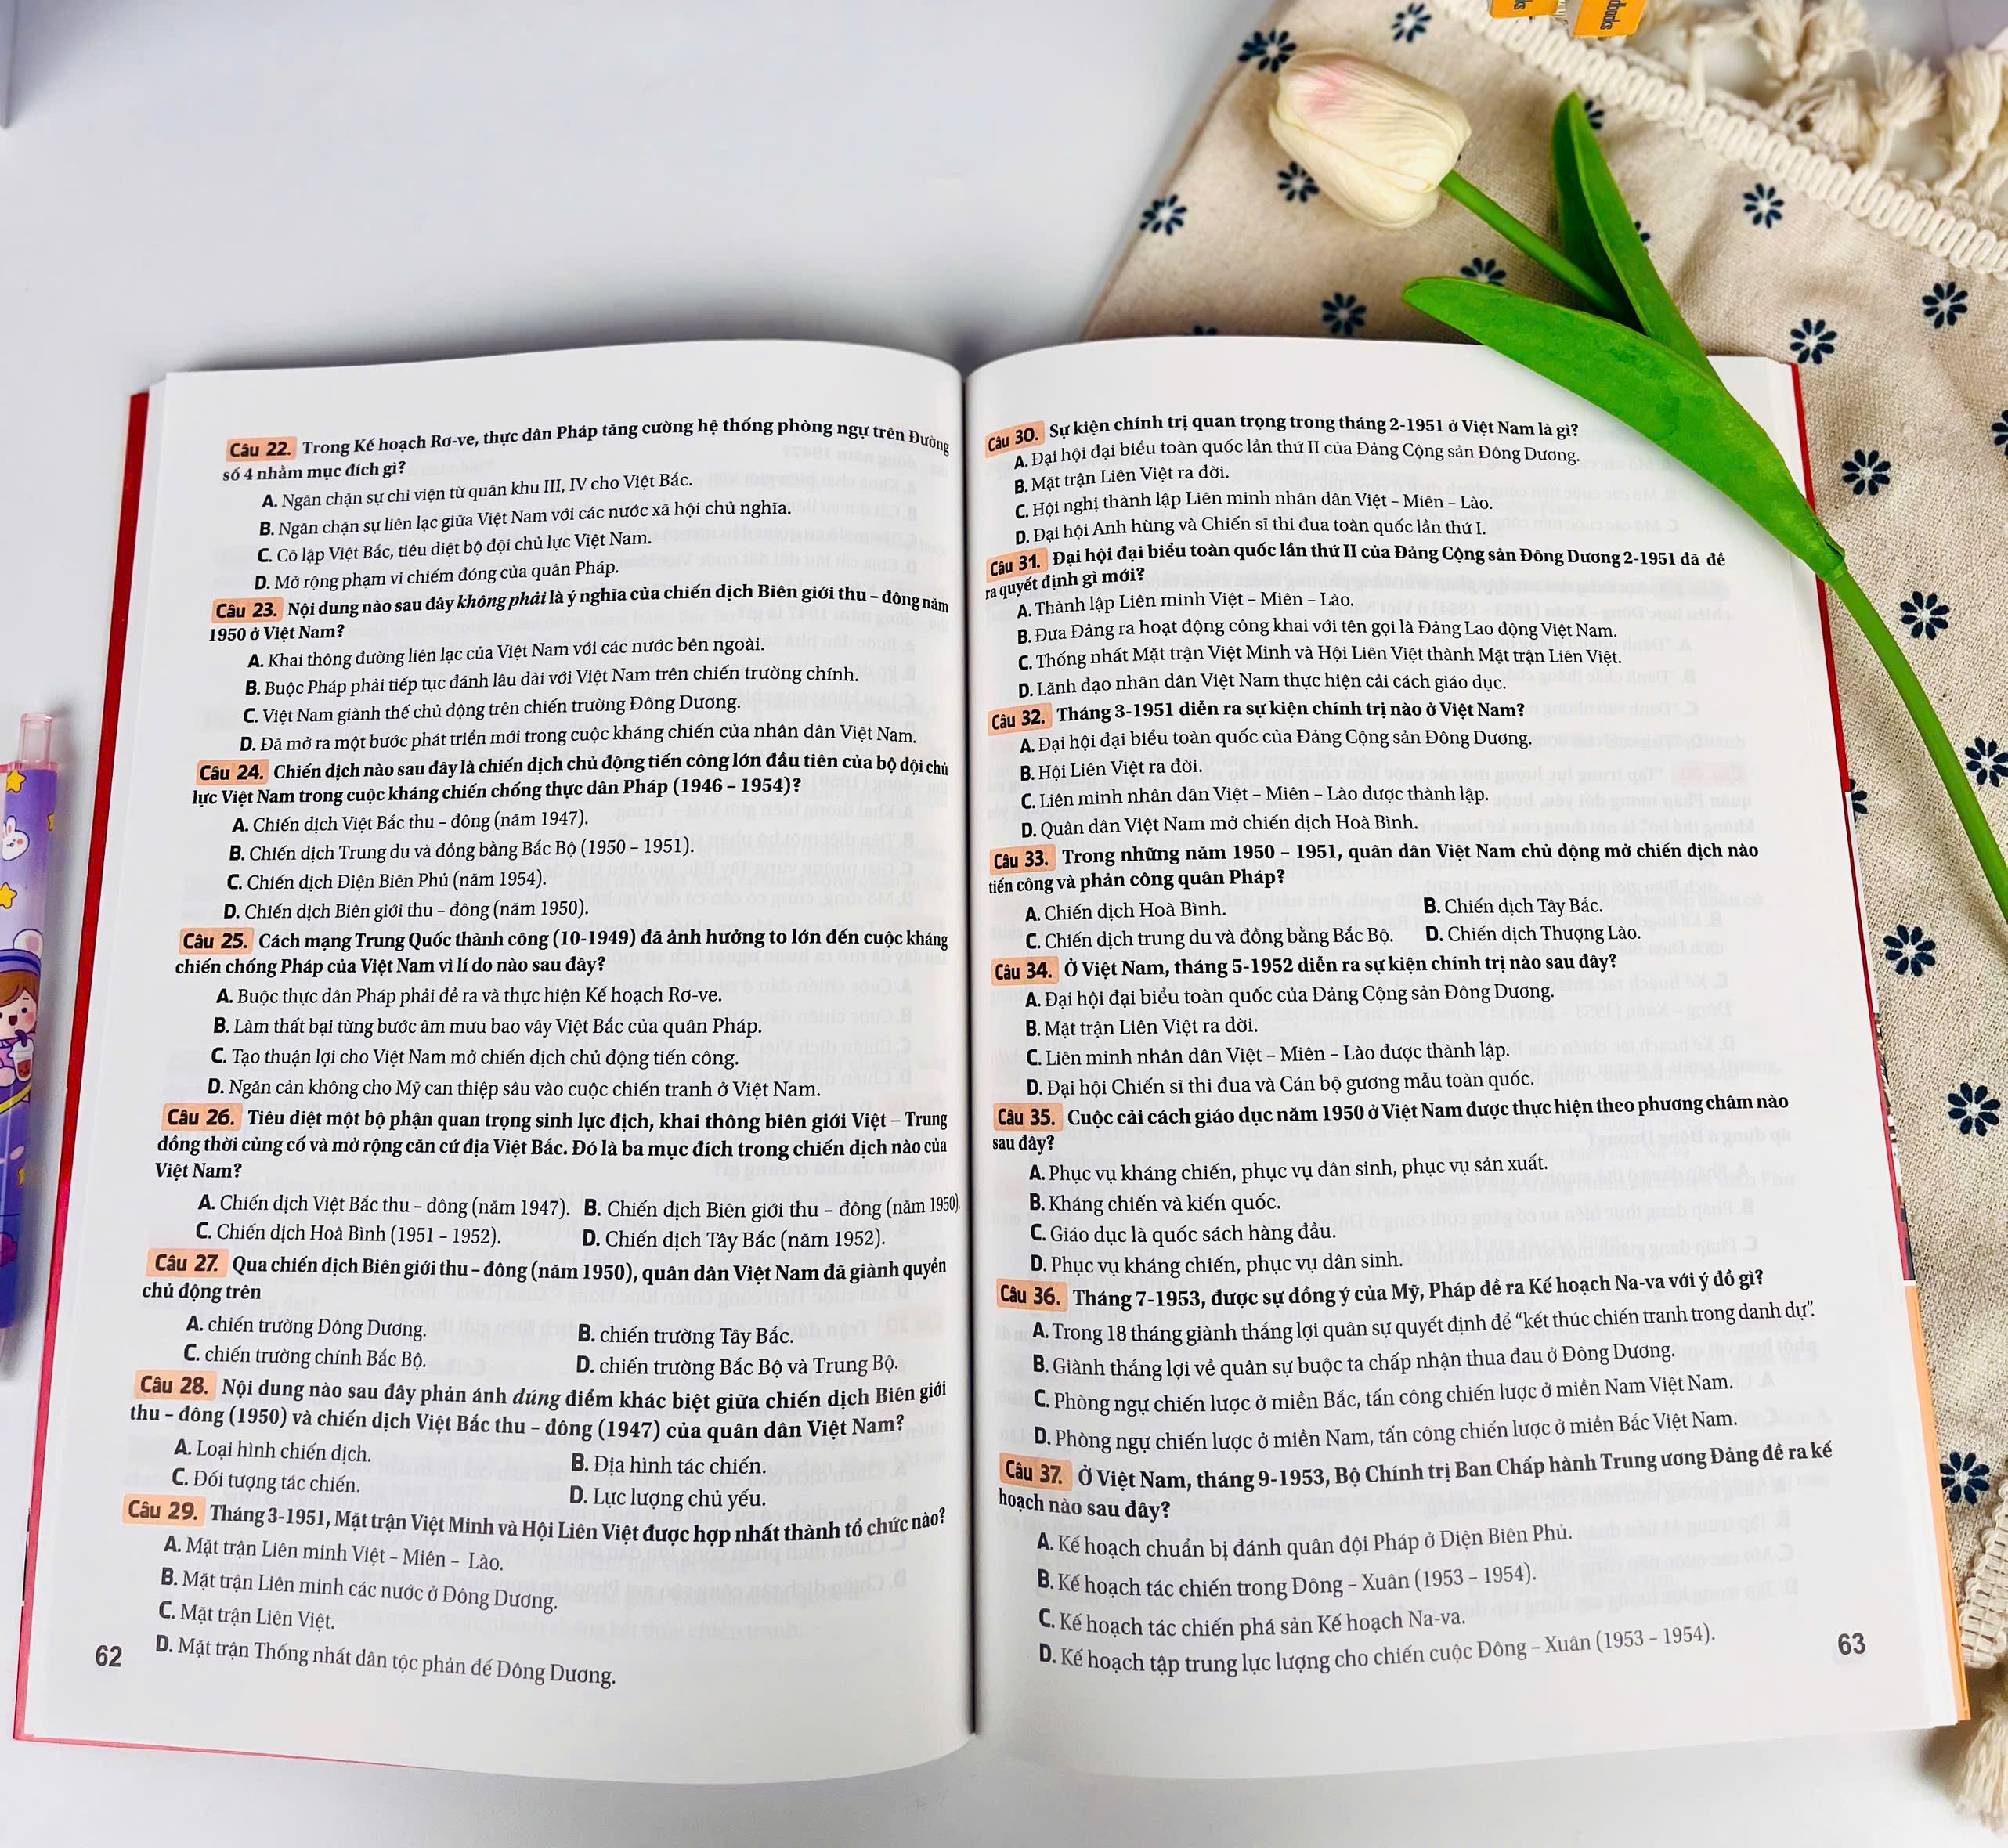 Câu 22. Trong Kế hoạch Rơ-ve, thực dân Pháp tăng cường hệ thống phòng ngự trên Đường
số 4 nhằm mục đích gì?
A. Ngăn chặn sự chi viện từ quân khu III, IV cho Việt Bắc.
B. Ngăn chặn sự liên lạc giữa Việt Nam với các nước xã hội chủ nghĩa.
C. Cô lập Việt Bắc, tiêu diệt bộ đội chủ lực Việt Nam.
D. Mở rộng phạm vi chiếm đóng của quân Pháp.
Câu 23. Nội dung nào sau đây không phải là ý nghĩa của chiến dịch Biên giới thu – đông năm
1950 ở Việt Nam?
A. Khai thông đường liên lạc của Việt Nam với các nước bên ngoài.
B. Buộc Pháp phải tiếp tục đánh lâu dài với Việt Nam trên chiến trường chính.
C. Việt Nam giành thế chủ động trên chiến trường Đông Dương.
D. Đã mở ra một bước phát triển mới trong cuộc kháng chiến của nhân dân Việt Nam.
Câu 24. Chiến dịch nào sau đây là chiến dịch chủ động tiến công lớn đầu tiên của bộ đội chủ
lực Việt Nam trong cuộc kháng chiến chống thực dân Pháp (1946 – 1954)?
A. Chiến dịch Việt Bắc thu – đông (năm 1947).
B. Chiến dịch Trung du và đồng bằng Bắc Bộ (1950 – 1951).
C. Chiến dịch Điện Biên Phủ (năm 1954).
D. Chiến dịch Biên giới thu – đông (năm 1950).
Câu 25. Cách mạng Trung Quốc thành công (10-1949) đã ảnh hưởng to lớn đến cuộc kháng
chiến chống Pháp của Việt Nam vì lí do nào sau đây?
A. Buộc thực dân Pháp phải đề ra và thực hiện Kế hoạch Rơ-ve.
B. Làm thất bại từng bước âm mưu bao vây Việt Bắc của quân Pháp.
C. Tạo thuận lợi cho Việt Nam mở chiến dịch chủ động tiến công.
D. Ngăn cản không cho Mỹ can thiệp sâu vào cuộc chiến tranh ở Việt Nam.
Câu 26. Tiêu diệt một bộ phận quan trọng sinh lực địch, khai thông biên giới Việt – Trung
đồng thời củng cố và mở rộng căn cứ địa Việt Bắc. Đó là ba mục đích trong chiến dịch nào của
Việt Nam?
A. Chiến dịch Việt Bắc thu – đông (năm 1947). B. Chiến dịch Biên giới thu – đông (năm 1950).
C. Chiến dịch Hoà Bình (1951 – 1952). D. Chiến dịch Tây Bắc (năm 1952).
Câu 27. Qua chiến dịch Biên giới thu – đông (năm 1950), quân dân Việt Nam đã giành quyền
chủ động trên
A. chiến trường Đông Dương. B. chiến trường Tây Bắc.
C. chiến trường chính Bắc Bộ. D. chiến trường Bắc Bộ và Trung Bộ.
Câu 28. Nội dung nào sau đây phản ánh đúng điểm khác biệt giữa chiến dịch Biên giới
thu – đông (1950) và chiến dịch Việt Bắc thu – đông (1947) của quân dân Việt Nam?
A. Loại hình chiến dịch. B. Địa hình tác chiến.
C. Đối tượng tác chiến. D. Lực lượng chủ yếu.
Câu 29. Tháng 3-1951, Mặt trận Việt Minh và Hội Liên Việt được hợp nhất thành tổ chức nào?
A. Mặt trận Liên minh Việt – Miên – Lào.
B. Mặt trận Liên minh các nước ở Đông Dương.
C. Mặt trận Liên Việt.
D. Mặt trận Thống nhất dân tộc phản đế Đông Dương.
62
Câu 30. Sự kiện chính trị quan trọng trong tháng 2-1951 ở Việt Nam là gì?
A. Đại hội đại biểu toàn quốc lần thứ II của Đảng Cộng sản Đông Dương.
B. Mặt trận Liên Việt ra đời.
C. Hội nghị thành lập Liên minh nhân dân Việt – Miên – Lào.
D. Đại hội Anh hùng và Chiến sĩ thi đua toàn quốc lần thứ I.
Câu 31. Đại hội đại biểu toàn quốc lần thứ II của Đảng Cộng sản Đông Dương 2-1951 đã đề
ra quyết định gì mới?
A. Thành lập Liên minh Việt – Miên – Lào.
B. Đưa Đảng ra hoạt động công khai với tên gọi là Đảng Lao động Việt Nam.
C. Thống nhất Mặt trận Việt Minh và Hội Liên Việt thành Mặt trận Liên Việt.
D. Lãnh đạo nhân dân Việt Nam thực hiện cải cách giáo dục.
Câu 32. Tháng 3-1951 diễn ra sự kiện chính trị nào ở Việt Nam?
A. Đại hội đại biểu toàn quốc của Đảng Cộng sản Đông Dương.
B. Hội Liên Việt ra đời.
C. Liên minh nhân dân Việt – Miên – Lào được thành lập.
D. Quân dân Việt Nam mở chiến dịch Hoà Bình.
Câu 33. Trong những năm 1950 – 1951, quân dân Việt Nam chủ động mở chiến dịch nào
tiến công và phản công quân Pháp?
A. Chiến dịch Hoà Bình. B. Chiến dịch Tây Bắc.
C. Chiến dịch trung du và đồng bằng Bắc Bộ. D. Chiến dịch Thượng Lào.
Câu 34. Ở Việt Nam, tháng 5-1952 diễn ra sự kiện chính trị nào sau đây?
A. Đại hội đại biểu toàn quốc của Đảng Cộng sản Đông Dương.
B. Mặt trận Liên Việt ra đời.
C. Liên minh nhân dân Việt – Miên – Lào được thành lập.
D. Đại hội Chiến sĩ thi đua và Cán bộ gương mẫu toàn quốc.
Câu 35. Cuộc cải cách giáo dục năm 1950 ở Việt Nam được thực hiện theo phương châm nào
sau đây?
A. Phục vụ kháng chiến, phục vụ dân sinh, phục vụ sản xuất.
B. Kháng chiến và kiến quốc.
C. Giáo dục là quốc sách hàng đầu.
D. Phục vụ kháng chiến, phục vụ dân sinh.
Câu 36. Tháng 7-1953, được sự đồng ý của Mỹ, Pháp đề ra Kế hoạch Na-va với ý đồ gì?
A. Trong 18 tháng giành thắng lợi quân sự quyết định để “kết thúc chiến tranh trong danh dự”.
B. Giành thắng lợi về quân sự buộc ta chấp nhận thua đau ở Đông Dương.
C. Phòng ngự chiến lược ở miền Bắc, tấn công chiến lược ở miền Nam Việt Nam.
D. Phòng ngự chiến lược ở miền Nam, tấn công chiến lược ở miền Bắc Việt Nam.
Câu 37. Ở Việt Nam, tháng 9-1953, Bộ Chính trị Ban Chấp hành Trung ương Đảng đề ra kế
hoạch nào sau đây?
A. Kế hoạch chuẩn bị đánh quân đội Pháp ở Điện Biên Phủ.
B. Kế hoạch tác chiến trong Đông – Xuân (1953 – 1954).
C. Kế hoạch tác chiến phá sản Kế hoạch Na-va.
D. Kế hoạch tập trung lực lượng cho chiến cuộc Đông – Xuân (1953 – 1954).
63